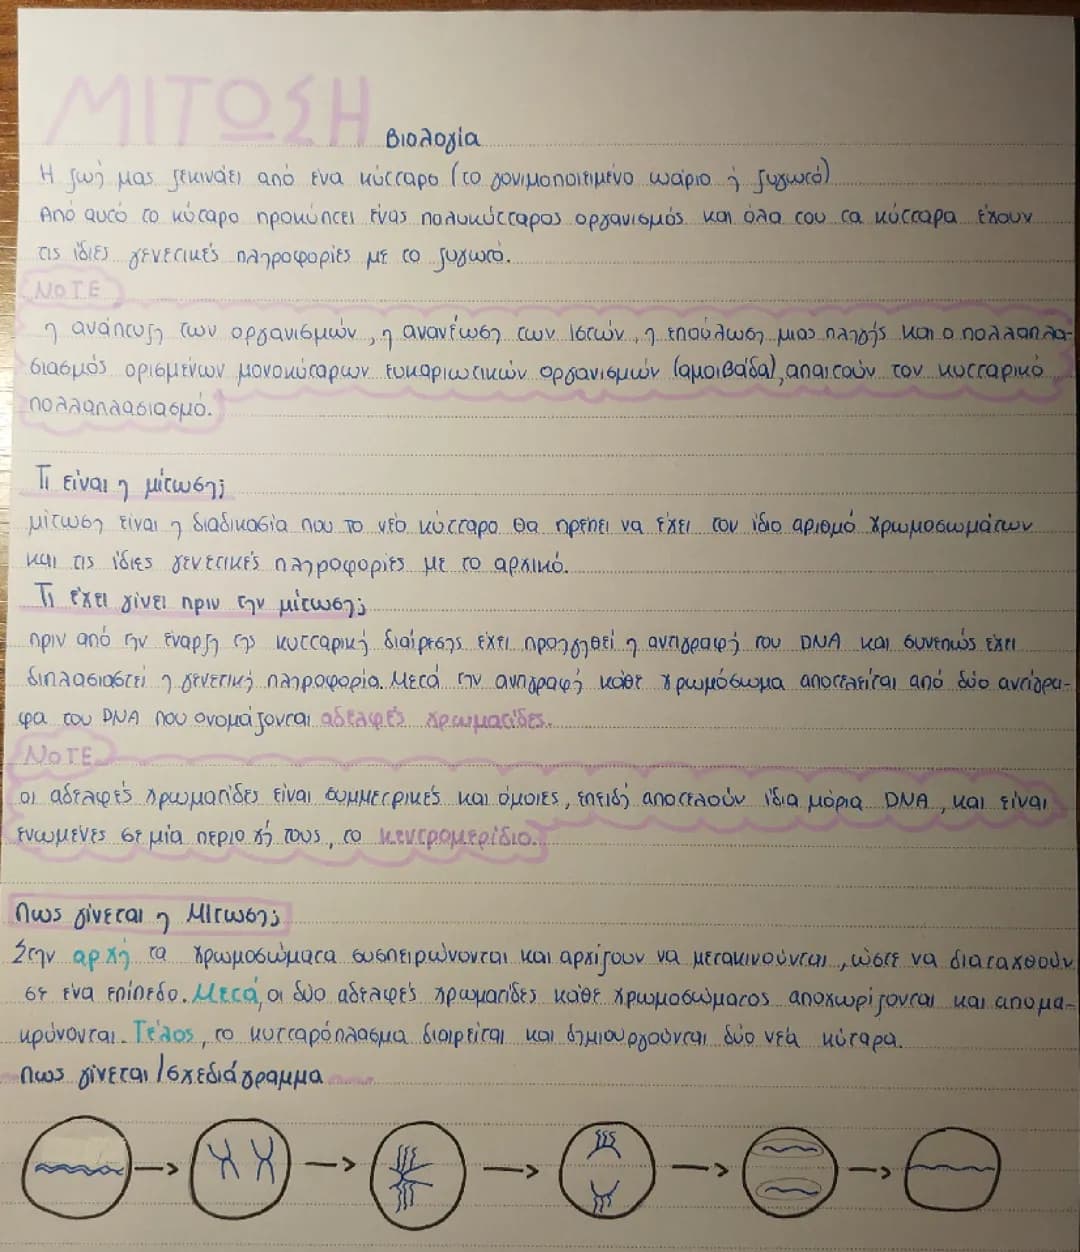 ΜΙΤΩΣΗ Βιολογία
Η ζωή μας ξεκινάει από ένα κύτταρο (το γονιμοποιημένο ωάριο ή ζυγωτό)
Από αυτό το κύταρο προκύπτει ένας πολυκύτταρος οργανισμός και όλα του τα κύτταρα έχουν
τις ίδιες γενετικές πληροφορίες με το ζυγωτό.
NOTE
η ανάπτυξη των οργανισμών, η ανανέωση των ιστών, η επούλωση μιας πληγής και ο πολλαπλα-
σιασμός ορισμένων μονοκύταρων ευκαριωτικών οργανισμών (αμοιβάδα), απαιτούν τον κυτταρικό
πολλαπλασιασμό.
Τι είναι η μίτωση;
μίτωση είναι η διαδικασία που το νέο κύτταρο θα πρέπει να έχει τον ίδιο αριθμό χρωμοσωμάτων
και τις ίδιες γενετικές πληροφορίες με το αρχικό.
Τι έχει γίνει πριν την μίτωση;
πριν από την έναρξη της κυτταρική διαίρεσης έχει προηγηθεί η αντιγραφή του DNA και συνεπώς έχει
διπλασιαστεί η γενετική πληροφορία. Μετά την αντιγραφή κάθε χρωμόσωμα αποτελείται από δύο αντίγρα-
φα του DNA που ονομάζονται αδελφές χρωματίδες.
NOTE
οι αδελφές χρωματίδες είναι συμμετρικές και όμοιες, επειδή αποτελούν ίδια μόρια DNA, και είναι
ενωμένες σε μία περιοχή τους, το κεντρομερίδιο.
Πως γίνεται η Μίτωση;
Στην αρχή τα χρωμοσώματα συσπειρώνονται και αρχίζουν να μετακινούνται, ώστε να διαταχθούν
σε ένα επίπεδο. Μετά, οι δύο αδελφές χρωματίδες κάθε χρωμοσώματος αποχωρίζονται και απομα-
κρύνονται. Τέλος, το κυτταρόπλασμα διαιρείται και δημιουργούνται δύο νέα κύταρα.
Πως γίνεται/σχεδιάγραμμα